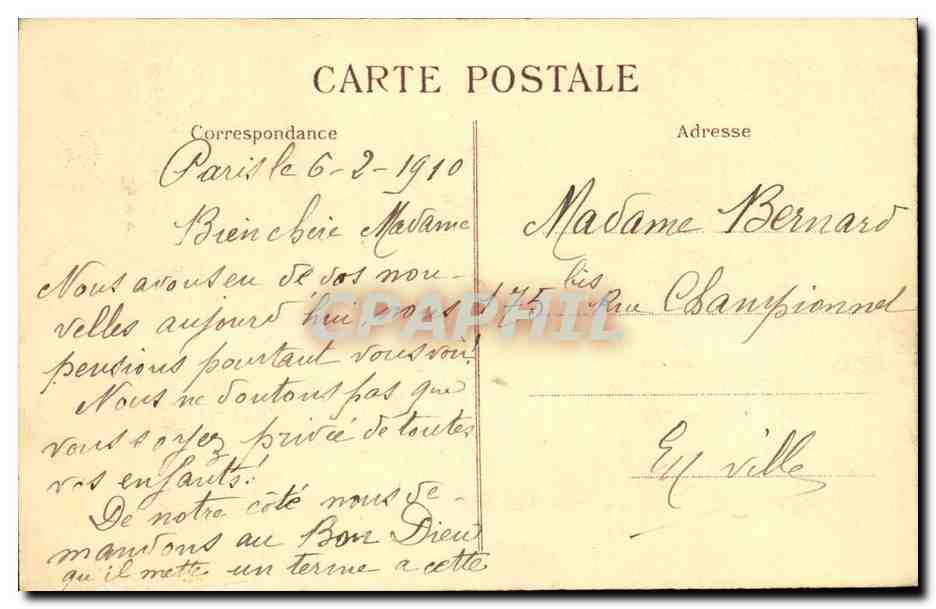 CARTE POSTALE
Correspondance
Paris le 6-2-1910
Bien chère Madame
Nous avons eu de vos nou-
velles aujourd'hui, nous
pensions pourtant vous voir!
Nous ne doutons pas que
vous soyez privée de toutes
vos enfants!
De notre côté nous de-
mandons au Bon Dieu
qu'il mette un terme a cette
Adresse
Madame Bernard
175 bis Rue Championnet
En ville
CPAPHIL